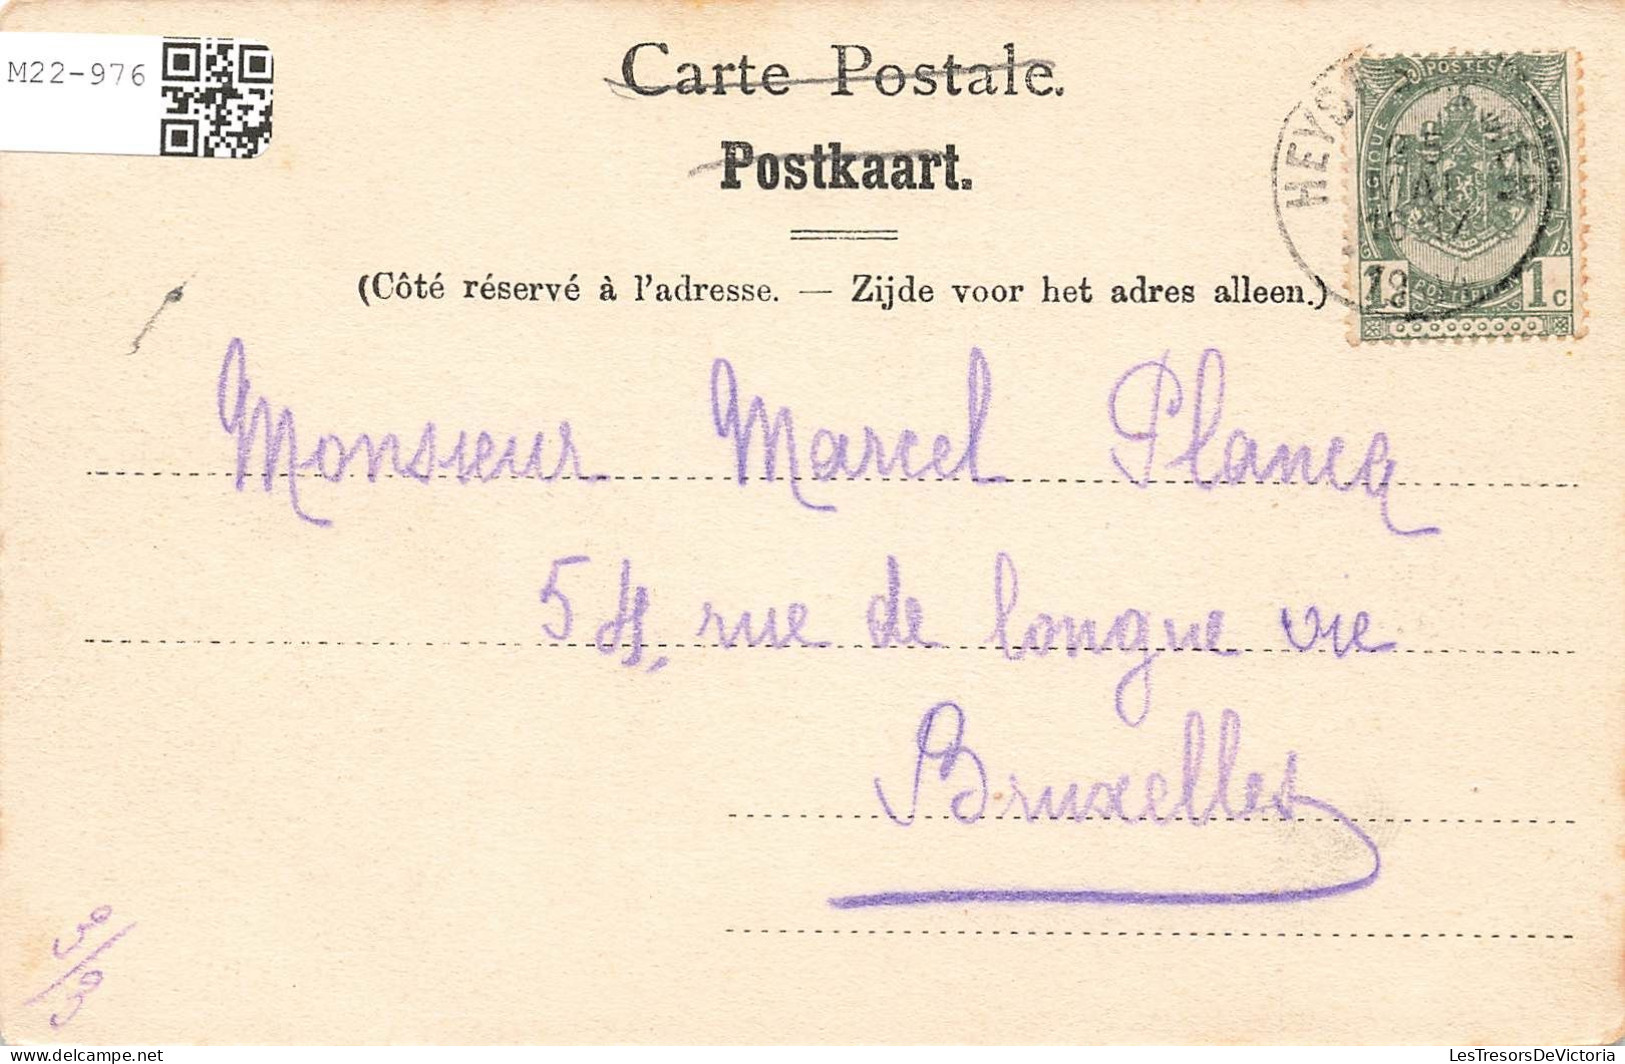 M22-976
Carte Postale.
Postkaart.
(Côté réservé à l'adresse. — Zijde voor het adres alleen.)
POSTES
BELGIQUE
1 1c
HEYST
Monsieur Marcel Plancq
54, rue de longue vie
Bruxelles
3/3
delcampe.net
LesTresorsDeVictoria